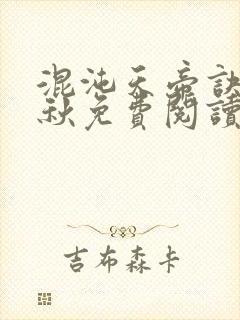 混沌天帝訣
秋免費閱讀
吉布森卡